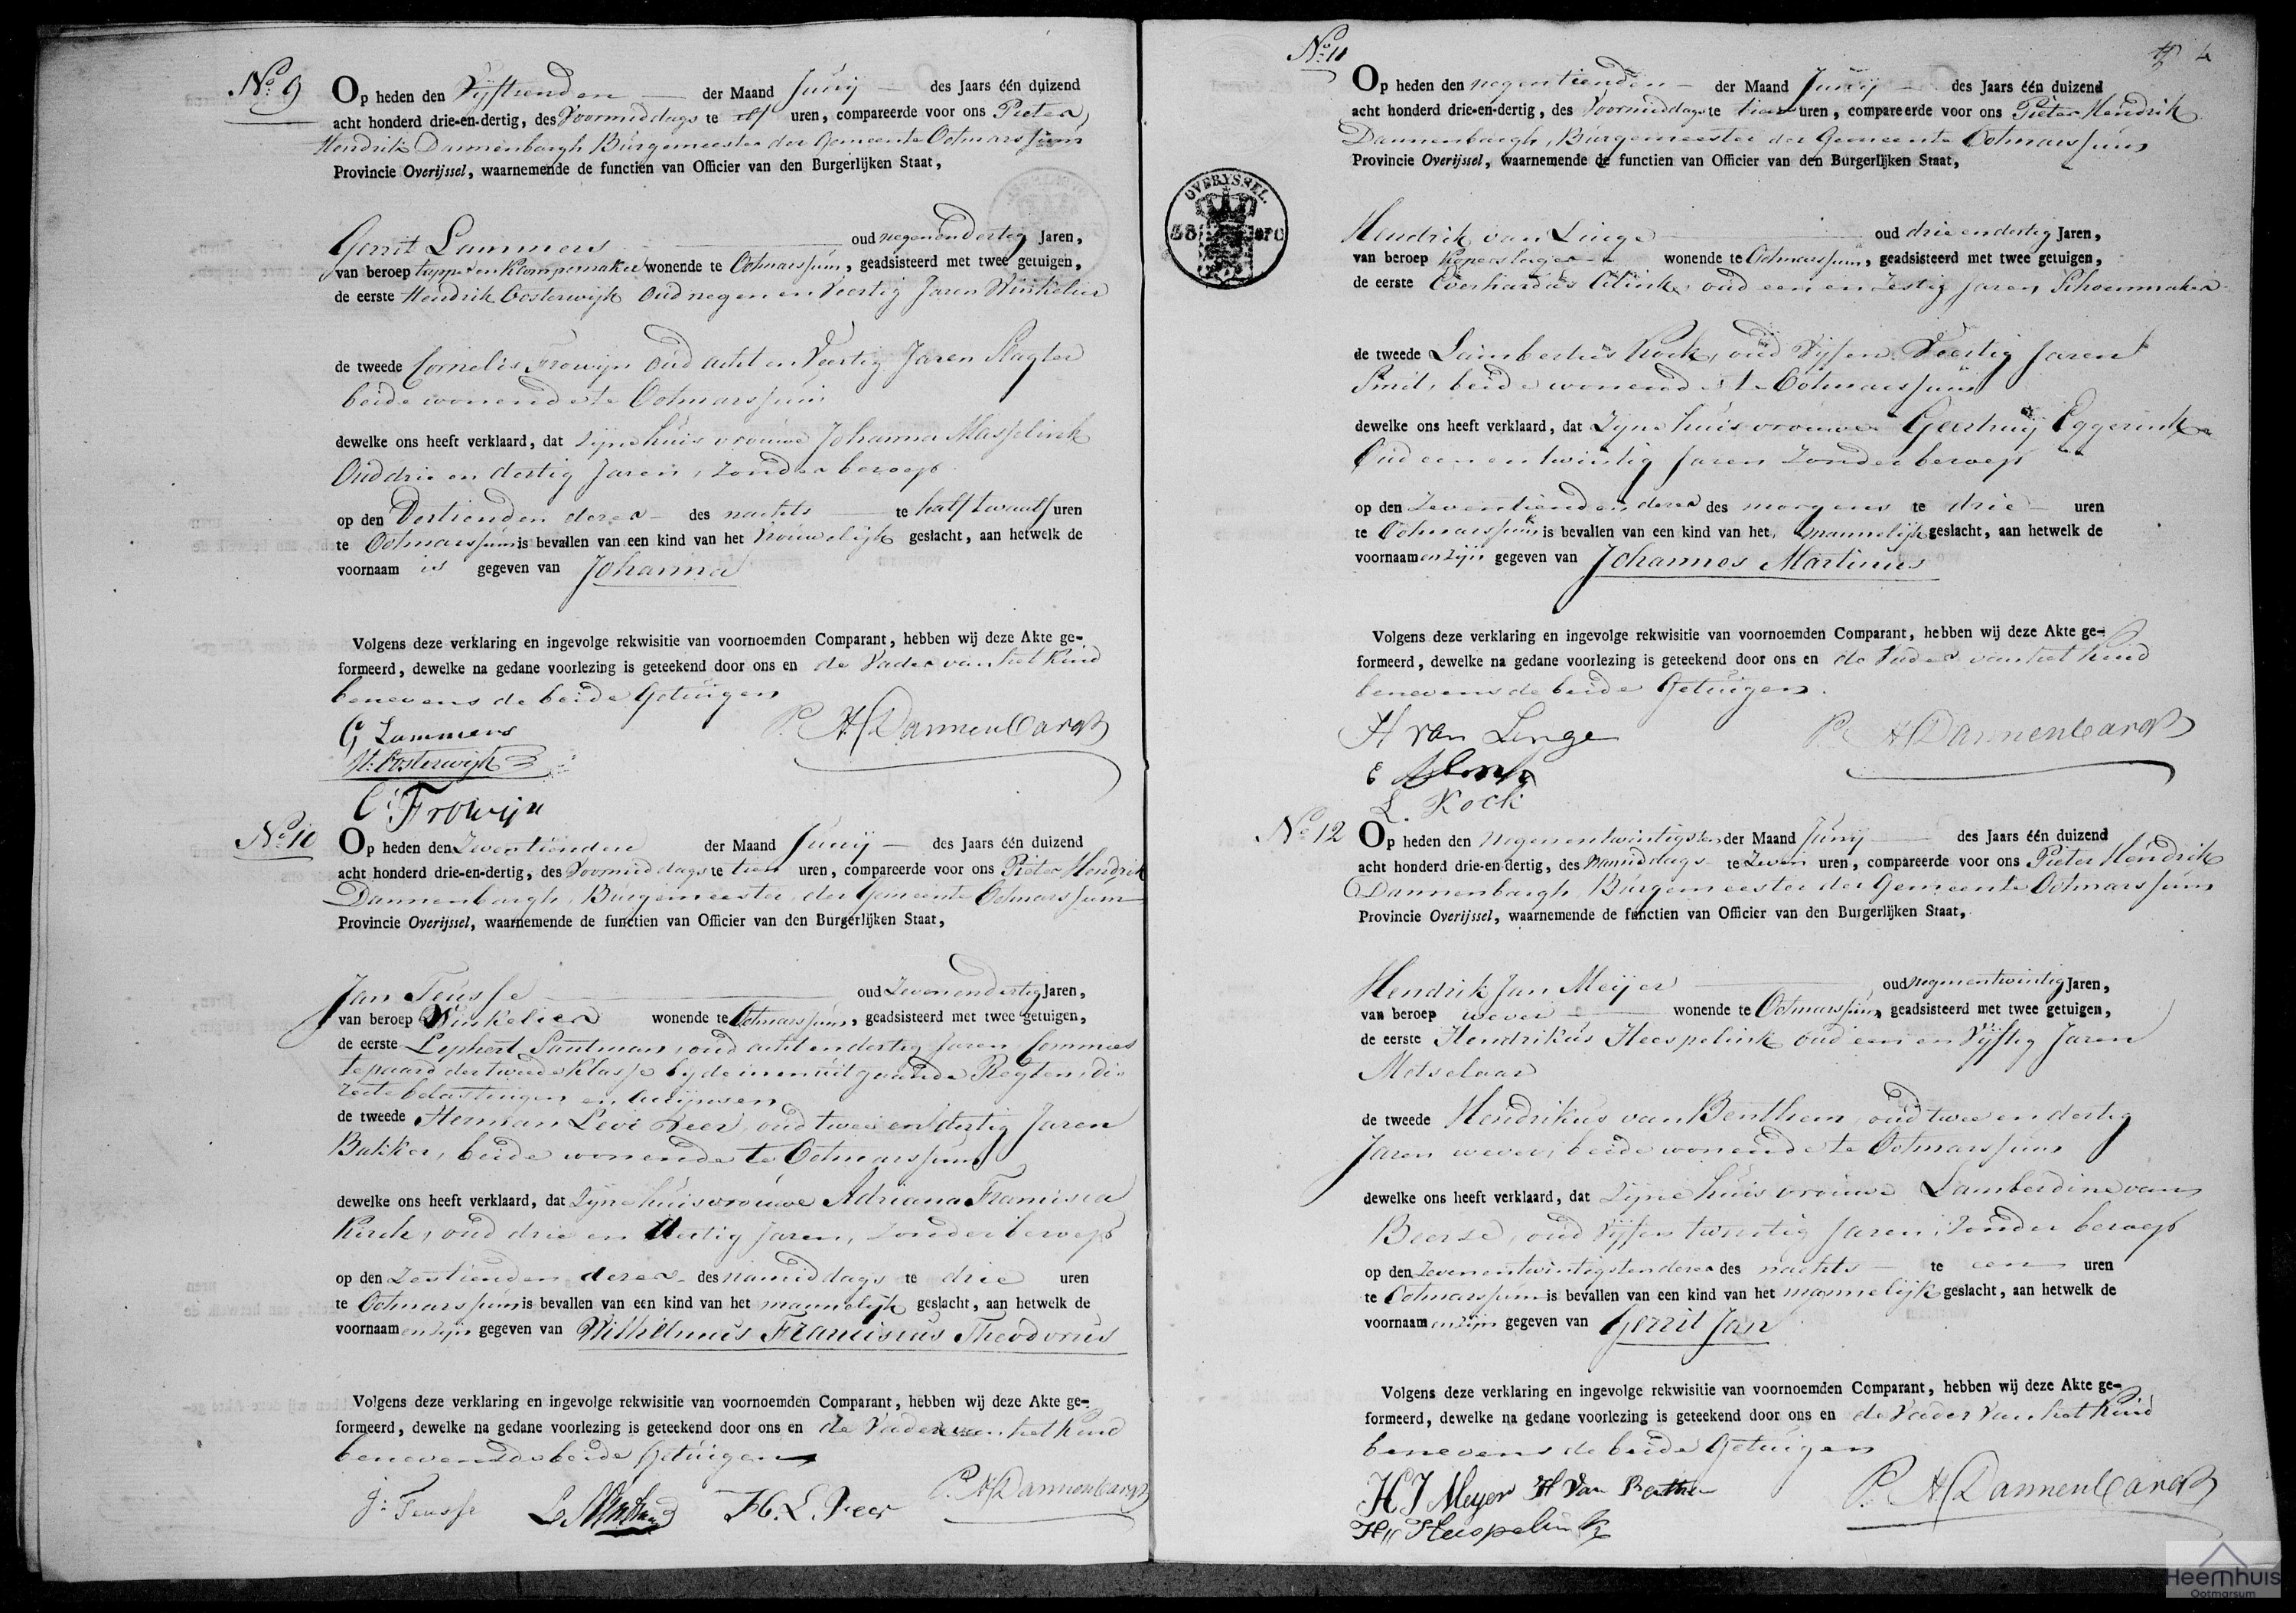 No 9
Op heden den Vijftienden der Maand Junij des Jaars één duizend
acht honderd drie-en-dertig, des Voormiddags te elf uren, compareerde voor ons Pieter
Hendrik Dannenbargh Burgemeester der Gemeente Ootmarssum
Provincie Overijssel, waarnemende de functien van Officier van den Burgerlijken Staat,
Gerrit Lammers oud negenendertig Jaren,
van beroep tapper en Klompemaker wonende te Ootmarssum, geadsisteerd met twee getuigen,
de eerste Hendrik Oosterwijk oud negen en Veertig Jaren Winkelier
de tweede Cornelis Frowijn oud acht en Veertig Jaren Slagter
beide wonende te Ootmarssum
dewelke ons heeft verklaard, dat Zijne huisvrouwe Johanna Masselink
Oud drie en dertig Jaren, Zonder beroep
op den Dertienden dezer des nachts te half twaalf uren
te Ootmarssum is bevallen van een kind van het Vrouwelijk geslacht, aan hetwelk de
voornaam is gegeven van Johanna
Volgens deze verklaring en ingevolge rekwisitie van voornoemden Comparant, hebben wij deze Akte ge-
formeerd, dewelke na gedane voorlezing is geteekend door ons en de Vader van het Kind
benevens de beide Getuigen
G Lammers P. H. Dannenbargh
H: Oosterwijk
C: Frowijn
No 10
Op heden den Zeventienden der Maand Junij des Jaars één duizend
acht honderd drie-en-dertig, des Voormiddags te tien uren, compareerde voor ons Pieter Hendrik
Dannenbargh, Burgemeester der Gemeente Ootmarssum
Provincie Overijssel, waarnemende de functien van Officier van den Burgerlijken Staat,
Jan Teusse oud Zevenendertig Jaren,
van beroep Winkelier wonende te Ootmarssum, geadsisteerd met twee getuigen,
de eerste Lephert Santman, oud acht en dertig Jaren Commies
te paard der tweede Klasse bij de in en uitgaande Regten, di-
recte belastingen en accijnsen
de tweede Herman Levi Beer, oud twee en dertig Jaren
Bakker, beide wonende te Ootmarssum
dewelke ons heeft verklaard, dat Zijne huisvrouwe Adriana Francisca
Kerck, oud drie en dertig Jaren, Zonder beroep
op den Zestienden dezer des namiddags te drie uren
te Ootmarssum is bevallen van een kind van het mannelijk geslacht, aan hetwelk de
voornaam en zijn gegeven van Wilhelmus Franciscus Theodorus
Volgens deze verklaring en ingevolge rekwisitie van voornoemden Comparant, hebben wij deze Akte ge-
formeerd, dewelke na gedane voorlezing is geteekend door ons en de Vader van het Kind
benevens de beide Getuigen
J: Teusse H. L. Beer P. H. Dannenbargh
No 11
Op heden den negentienden der Maand Junij des Jaars één duizend
acht honderd drie-en-dertig, des Voormiddags te tien uren, compareerde voor ons Pieter Hendrik
Dannenbargh, Burgemeester der Gemeente Ootmarssum
Provincie Overijssel, waarnemende de functien van Officier van den Burgerlijken Staat,
OVERYSSEL.
Hendrik van Linge oud drie en dertig Jaren,
van beroep Koperslager wonende te Ootmarssum, geadsisteerd met twee getuigen,
de eerste Everhardus oud een en Zestig Jaren Schoenmaker
de tweede Lambertus Kock, oud Vijf en Veertig Jaren
Smit, beide wonende te Ootmarssum
dewelke ons heeft verklaard, dat Zijne huisvrouwe Geertruij Eggerink
Oud een en twintig Jaren Zonder beroep
op den Zeventienden dezer des morgens te drie uren
te Ootmarssum is bevallen van een kind van het mannelijk geslacht, aan hetwelk de
voornaam en zijn gegeven van Johannes Martinus
Volgens deze verklaring en ingevolge rekwisitie van voornoemden Comparant, hebben wij deze Akte ge-
formeerd, dewelke na gedane voorlezing is geteekend door ons en de Vader van het Kind
benevens de beide Getuigen.
H van Linge P. H. Dannenbargh
L. Kock
No 12
Op heden den Negenentwintigsten der Maand Junij des Jaars één duizend
acht honderd drie-en-dertig, des Namiddags te Zeven uren, compareerde voor ons Pieter Hendrik
Dannenbargh, Burgemeester der Gemeente Ootmarssum
Provincie Overijssel, waarnemende de functien van Officier van den Burgerlijken Staat,
Hendrik Jan Meijer oud Negenentwintig Jaren,
van beroep wever wonende te Ootmarssum, geadsisteerd met twee getuigen,
de eerste Hendrikus Heespelink oud een en Vijftig Jaren
Metselaar
de tweede Hendrikus van Benthem, oud twee en dertig
Jaren wever, beide wonende te Ootmarssum
dewelke ons heeft verklaard, dat Zijne huisvrouwe Lamberdine van
Beerse, oud Vijf en twintig Jaren, Zonder beroep
op den Zevenentwintigsten dezer des nachts te een uren
te Ootmarssum is bevallen van een kind van het mannelijk geslacht, aan hetwelk de
voornaam en zijn gegeven van Gerrit Jan
Volgens deze verklaring en ingevolge rekwisitie van voornoemden Comparant, hebben wij deze Akte ge-
formeerd, dewelke na gedane voorlezing is geteekend door ons en de Vader van het Kind
benevens de beide Getuigen
HJ Meyer H Van Benthem P. H. Dannenbargh
H Heespelink
Heemhuis
Ootmarsum